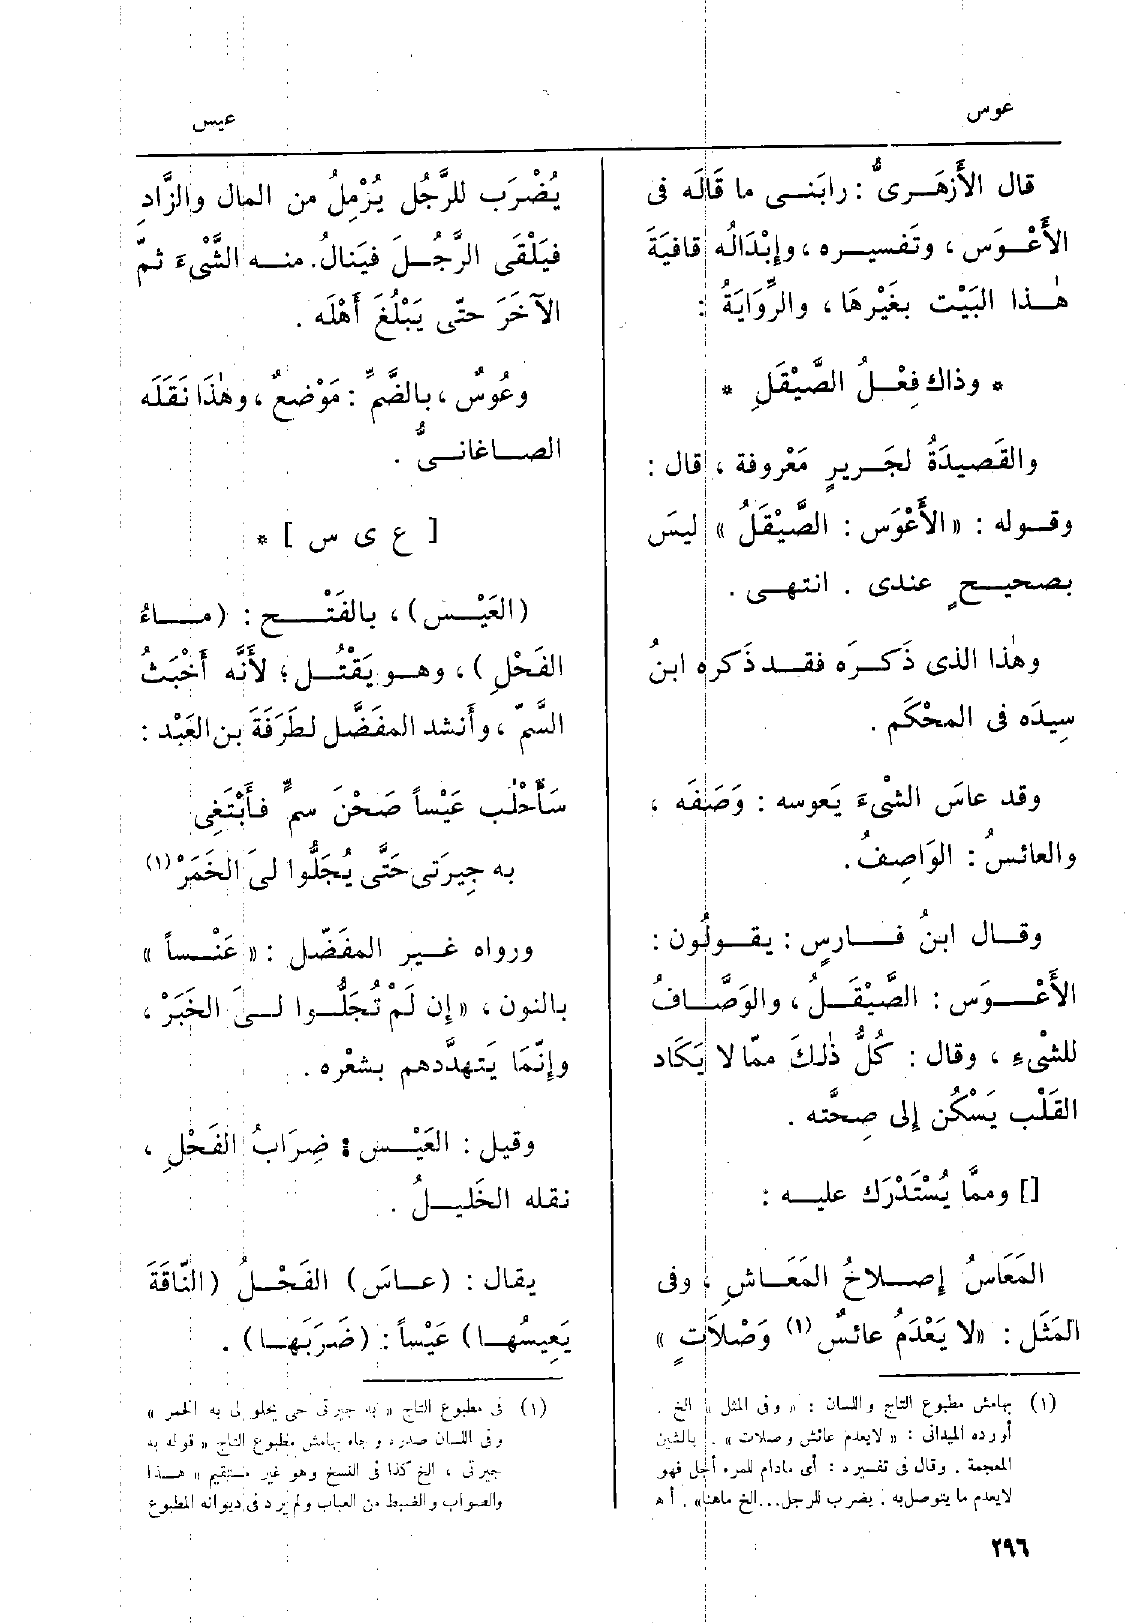 عوس
عيس
قال الأَزهَرىُّ : رابَنى ما قَالَه فى
الأَعْوَس ، وتَفسيره ، وإِبْدَالُه قافيَةَ
هٰذا البَيْت بغَيْرهَا ، والرِّوَايَةُ :
* وذاك فِعْلُ الصَّيْقَلِ *
والقَصيدَةُ لجَريرٍ مَعْروفة ، قال :
وقوله : « الأَعْوَس : الصَّيْقَلُ » ليسَ
بصحيحٍ عندى . انتهى .
وهٰذا الذى ذَكرَه فقد ذَكره ابنُ
سِيدَه فى المحْكَم .
وقد عاسَ الشىْءَ يَعوسه : وَصَفَه ،
والعائسُ : الوَاصِفُ .
وقال ابنُ فارسٍ : يقولُون :
الأَعْوَس : الصَّيْقَلُ ، والوَصَّافُ
للشىْءِ ، وقال : كُلُّ ذٰلكَ ممّا لا يَكَاد
القَلْب يَسْكُن إِلى صِحَّته .
[] وممَّا يُسْتَدْرَك عليه :
المَعَاسُ إِصلاحُ المَعَاشِ ، وفى
المَثَل : «لا يَعْدَمُ عائسٌ (١) وَصْلاَتٍ »
(١) بهامش مطبوع التاج واللسان : « وفى المثل » الخ .
أورده الميدانى : « لايعدم عائش وصلات » . بالشين
المعجمة . وقال فى تفسيره : أى مادام للمرء أجل فهو
لايعدم ما يتوصل به . يضرب للرجل...الخ ماهنا» . أ ه
يُضْرَب للرَّجُل يُرْمِلُ من المال والزَّادِ
فيَلْقَى الرَّجُلَ فيَنالُ . منه الشَّىْءَ ثمّ
الآخَرَ حتّى يَبْلُغَ أَهْلَه .
وعُوسٌ ، بالضَّمِّ : مَوْضعٌ ، وهٰذَا نَقَلَه
الصاغانىُّ .
[ ع ى س ] *
(العَيْس) ، بالفَتْح : (ماءُ
الفَحْلِ ) ، وهو يَقْتُل ؛ لأَنَّه أَخْبَثُ
السَّمّ ، وأَنشد المفَضَّل لطَرَفَةَ بن العَبْد :
سَأَحْلُب عَيْساً صَحْنَ سمٍّ فأَبْتَغِى
به جِيرَتى حَتَّى يُجَلُّوا لىَ الخَمَرْ (١)
ورواه غير المفَضّل : « عَنْساً »
بالنون ، «إِن لَمْ تُجَلُّوا لىَ الخَبَرْ ،
وإِنَّمَا يَتهدَّدهم بشعْره .
وقيل : العَيْس : ضِرَابُ الفَحْلِ ،
نقله الخَليلُ .
يقال : (عاسَ) الفَحْلُ (النَّاقَةَ
يَعِيسُها) عَيْساً : (ضَرَبَها) .
(١) فى مطبوع التاج « به جيرتى حتى يجلو لى به الخمر »
وفى اللسان صدره وجاء بهامش مطبوع التاج « قوله به
جيرتى ، الخ كذا فى النسخ وهو غير مستقيم » هذا
والصواب والضبط من العباب ولم يرد فى ديوانه المطبوع
٢٩٦